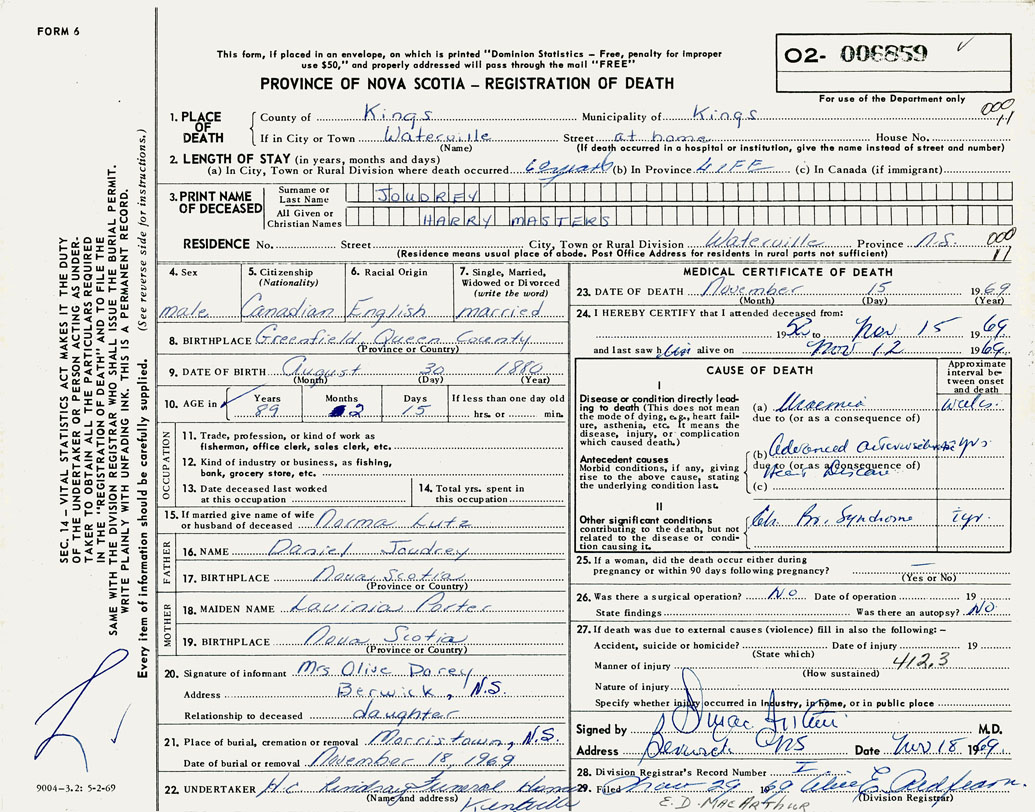 FORM 6
This form, if placed in an envelope, on which is printed "Dominion Statistics – Free, penalty for improper
use $50," and properly addressed will pass through the mail "FREE"
PROVINCE OF NOVA SCOTIA – REGISTRATION OF DEATH
02- 006859
For use of the Department only
1. PLACE OF DEATH
County of Kings Municipality of Kings
If in City or Town Waterville Street at home House No.
(Name) (If death occurred in a hospital or institution, give the name instead of street and number)
2. LENGTH OF STAY (in years, months and days)
(a) In City, Town or Rural Division where death occurred 60 years (b) In Province LIFE (c) In Canada (if immigrant)
3. PRINT NAME OF DECEASED
Surname or Last Name JOUDREY
All Given or Christian Names HARRY MASTERS
RESIDENCE No. Street City, Town or Rural Division Waterville Province N.S.
(Residence means usual place of abode. Post Office Address for residents in rural parts not sufficient)
4. Sex
male
5. Citizenship (Nationality)
Canadian
6. Racial Origin
English
7. Single, Married, Widowed or Divorced (write the word)
married
8. BIRTHPLACE Greenfield Queen County
(Province or Country)
9. DATE OF BIRTH August 30 1880
(Month) (Day) (Year)
10. AGE in Years Months Days If less than one day old
89 2 15 hrs. or min.
OCCUPATION
11. Trade, profession, or kind of work as
fisherman, office clerk, sales clerk, etc.
12. Kind of industry or business, as fishing,
bank, grocery store, etc.
13. Date deceased last worked
at this occupation
14. Total yrs. spent in
this occupation
15. If married give name of wife
or husband of deceased Norma Lutz
FATHER
16. NAME Daniel Joudrey
17. BIRTHPLACE Nova Scotia
(Province or Country)
MOTHER
18. MAIDEN NAME Lavinia Porter
19. BIRTHPLACE Nova Scotia
(Province or Country)
20. Signature of informant Mrs Olive Dorey
Address Berwick, N.S.
Relationship to deceased daughter
21. Place of burial, cremation or removal Morristown, N.S.
Date of burial or removal November 18, 1969
22. UNDERTAKER H.C. Lindsay Funeral Home
(Name and address) Kentville
MEDICAL CERTIFICATE OF DEATH
23. DATE OF DEATH November 15 1969
(Month) (Day) (Year)
24. I HEREBY CERTIFY that I attended deceased from:
1952 to Nov 15 1969
and last saw him alive on Nov 12 1969
CAUSE OF DEATH
Approximate interval between onset and death
I
Disease or condition directly leading
to death (This does not mean
the mode of dying, e.g., heart failure,
asthenia, etc. It means the
disease, injury, or complication
which caused death.)
(a) Uraemia weeks
due to (or as a consequence of)
Antecedent causes
Morbid conditions, if any, giving
rise to the above cause, stating
the underlying condition last.
(b) Advanced yrs.
due to (or as a consequence of)
Heart Disease
(c)
II
Other significant conditions
contributing to the death, but not
related to the disease or condition
causing it.
Ch. Br. Syndrome 1 yr.
25. If a woman, did the death occur either during
pregnancy or within 90 days following pregnancy?
(Yes or No)
26. Was there a surgical operation? NO Date of operation 19
State findings Was there an autopsy? NO
27. If death was due to external causes (violence) fill in also the following: –
Accident, suicide or homicide? Date of injury 19
(State which) 412.3
Manner of injury
(How sustained)
Nature of injury
Specify whether injury occurred in Industry, in home, or in public place
Signed by M.D.
Address Berwick NS Date Nov 18 1969
28. Division Registrar's Record Number
29. Filed Nov 29 1969 Alice E.
(Division Registrar)
E.D. MACARTHUR
SEC. 14 – VITAL STATISTICS ACT MAKES IT THE DUTY
OF THE UNDERTAKER OR PERSON ACTING AS UNDERTAKER
TO OBTAIN ALL THE PARTICULARS REQUIRED
IN THE "REGISTRATION OF DEATH" AND TO FILE THE
SAME WITH THE DIVISION REGISTRAR WHO SHALL ISSUE THE BURIAL PERMIT.
WRITE PLAINLY WITH UNFADING INK. THIS IS A PERMANENT RECORD.
Every item of information should be carefully supplied. (See reverse side for instructions.)
9004-3.2: 5-2-69